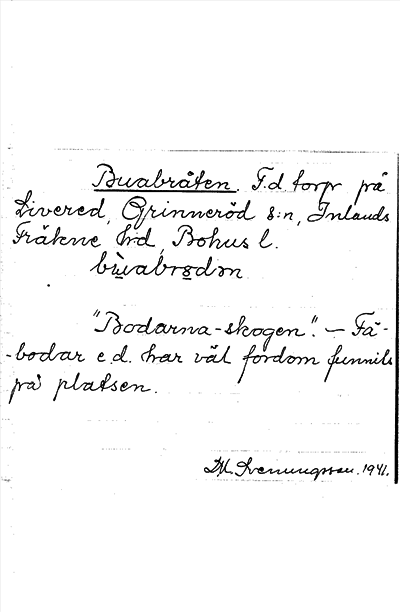 Buabråten. F.d torp på
Livered, Grinneröd s:n, Inlands
Fräkne hrd, Bohus l.
"Bodarna-skogen". – Fä-
-bodar e.d. har väl fordom funnits
på platsen.
1941.